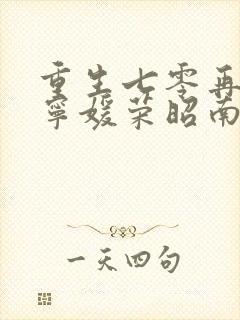 重生七零再
宁媛荣昭南
一天四句